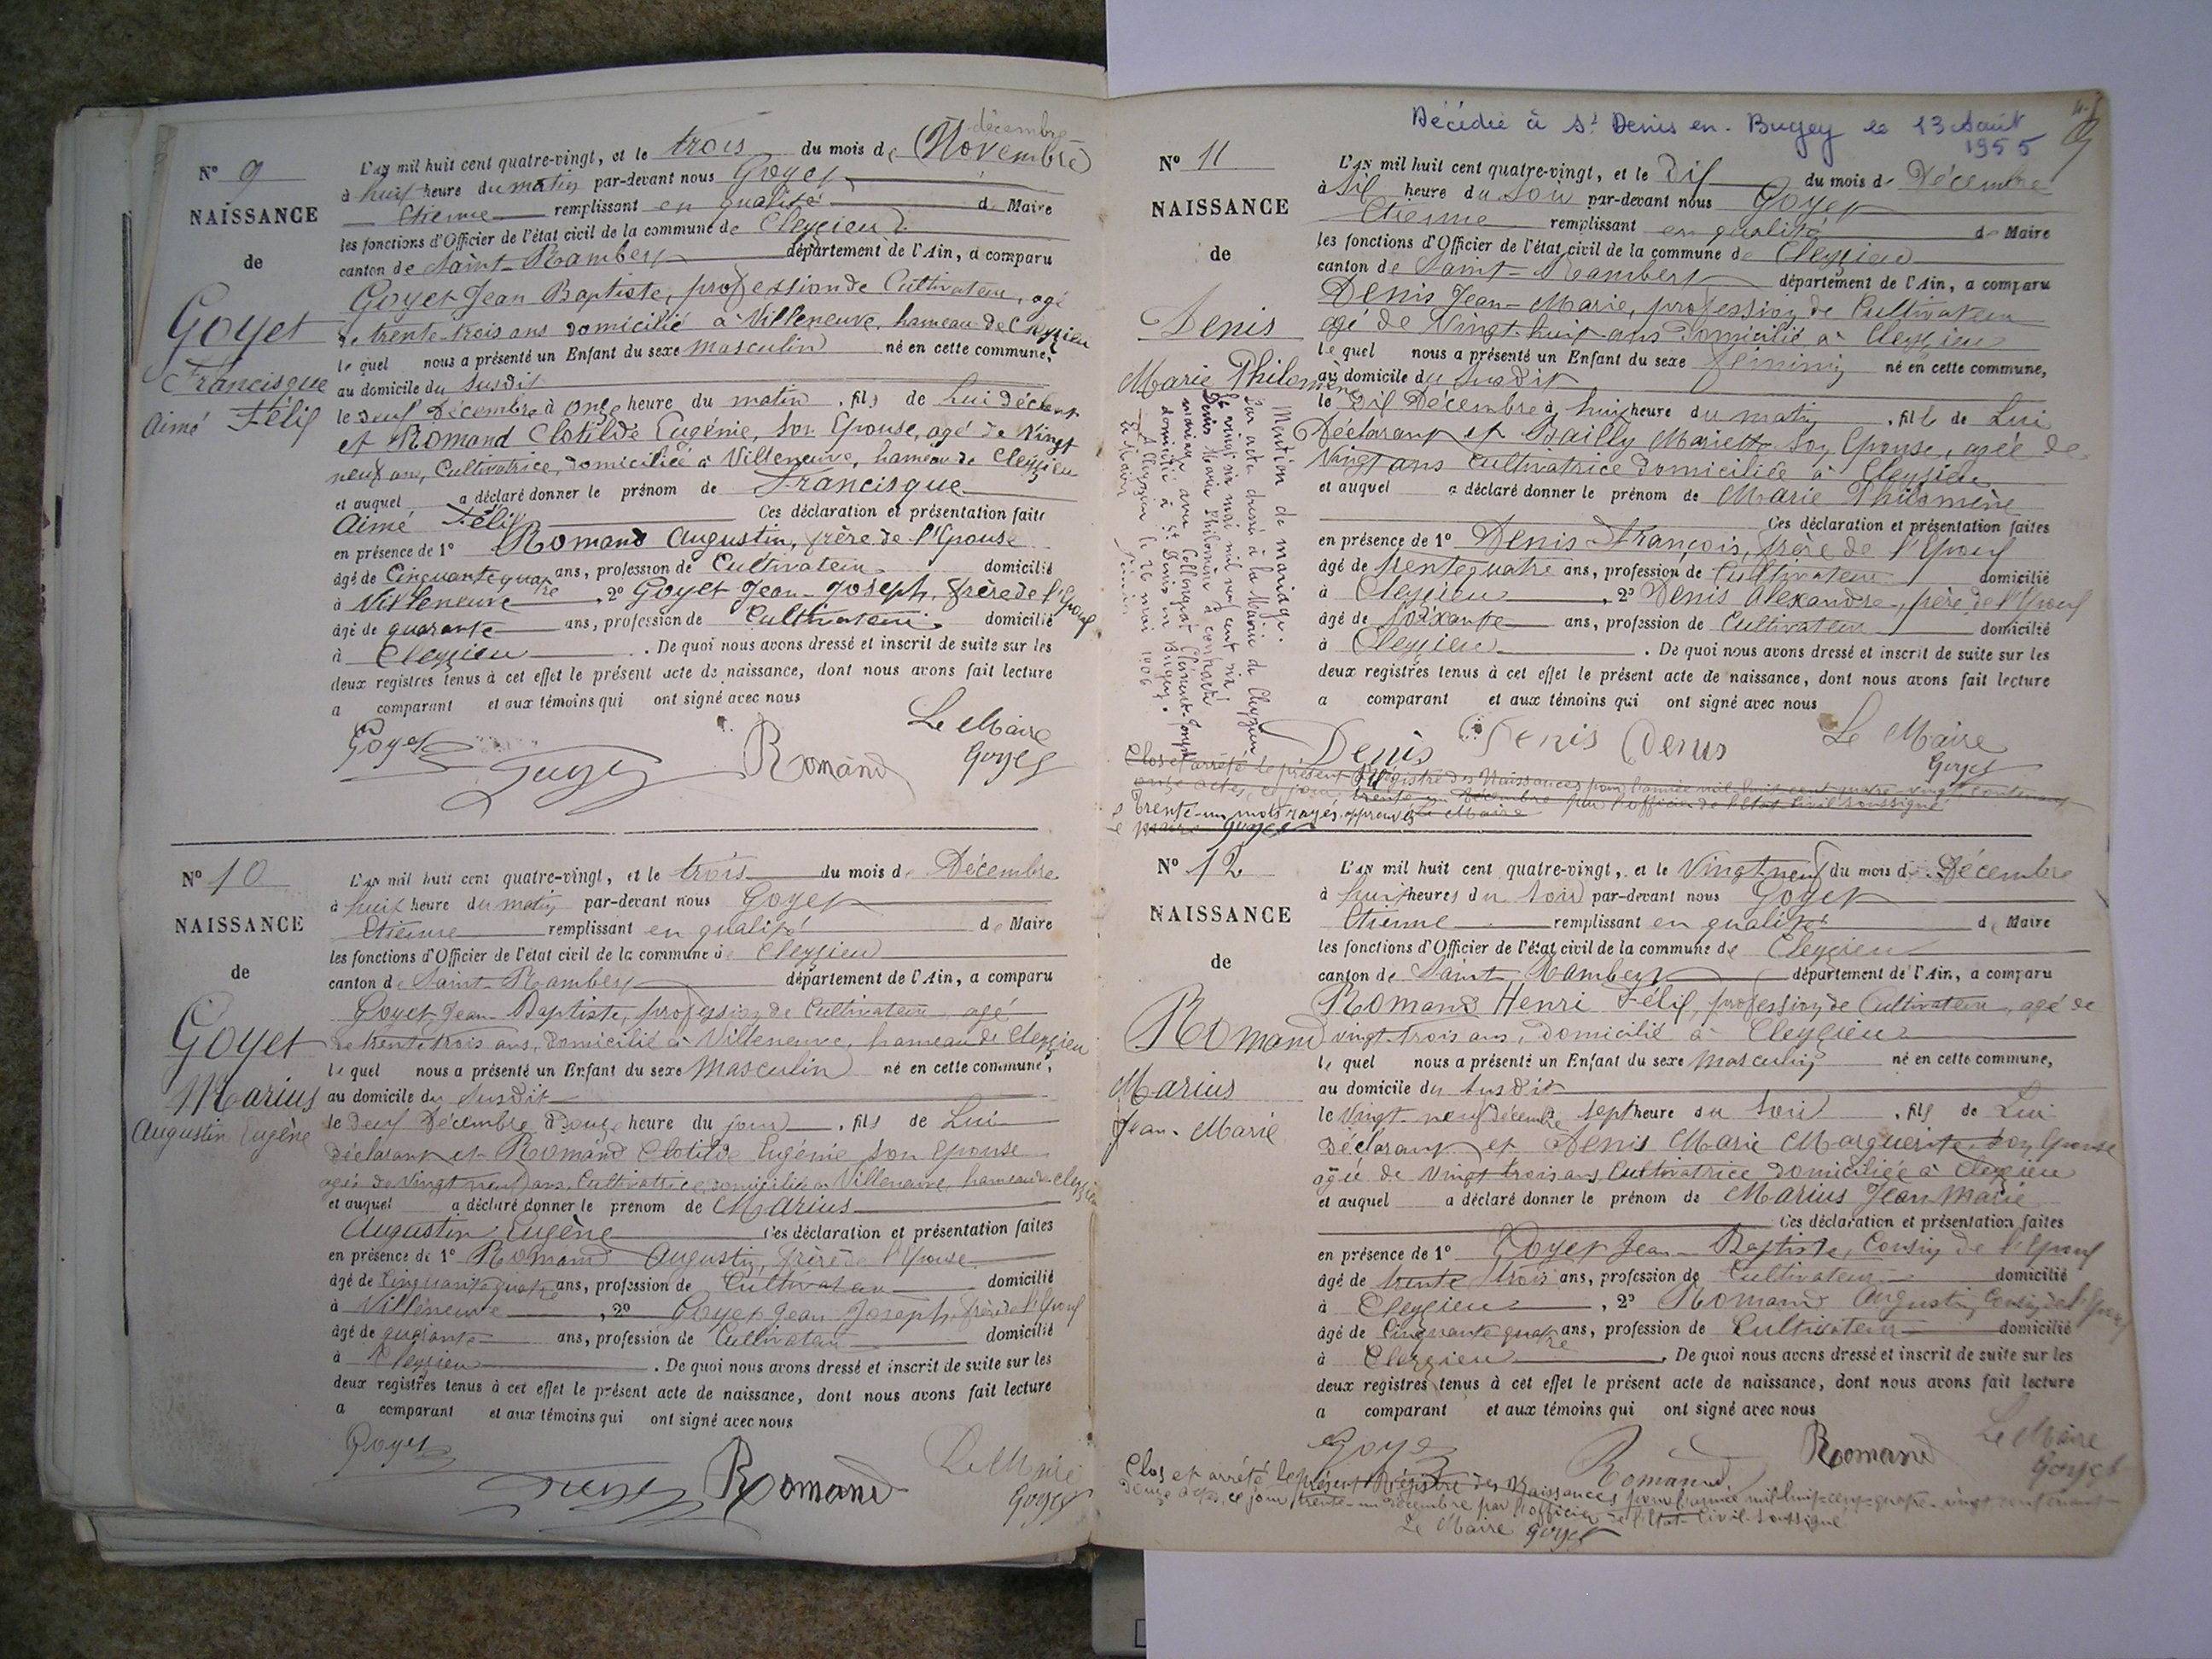 décembre
N° 9
NAISSANCE
de
Goyet
Francisque
Aimé Félix
L'an mil huit cent quatre-vingt, et le trois du mois de (Novembre)
à huit heure du matin par-devant nous Goyet
Etienne remplissant en qualité de Maire
les fonctions d'Officier de l'état civil de la commune de Cleyzieu
canton de Saint-Rambert département de l'Ain, a comparu
Goyet Jean Baptiste, profession de Cultivateur, agé
de trente-trois ans domicilié à Villeneuve, hameau de Cleyzieu
le quel nous a présenté un Enfant du sexe masculin né en cette commune,
au domicile du susdit
le deux Décembre à onze heure du matin, fils de Lui déclarant
et Romand Clotilde Eugénie, son Epouse, agé de Vingt
neuf ans, Cultivatrice, domiciliée à Villeneuve, hameau de Cleyzieu
et auquel a déclaré donner le prénom de Francisque
Aimé Félix Ces déclaration et présentation faites
en présence de 1° Romand Augustin, frère de l'Epouse
âgé de Cinquante quatre ans, profession de Cultivateur domicilié
à Villeneuve, 2° Goyet Jean-Joseph, frère de l'Epoux
âgé de quarante ans, profession de Cultivateur domicilié
à Cleyzieu. De quoi nous avons dressé et inscrit de suite sur les
deux registres tenus à cet effet le présent acte de naissance, dont nous avons fait lecture
a comparant et aux témoins qui ont signé avec nous
Le Maire
Goyet Goyet Romand Goyet
N° 10
NAISSANCE
de
Goyet
Marius
Augustin Eugène
L'an mil huit cent quatre-vingt, et le trois du mois de Décembre
à huit heure du matin par-devant nous Goyet
Etienne remplissant en qualité de Maire
les fonctions d'Officier de l'état civil de la commune de Cleyzieu
canton de Saint-Rambert département de l'Ain, a comparu
Goyet Jean-Baptiste, profession de Cultivateur, agé
de trente trois ans, domicilié à Villeneuve, hameau de Cleyzieu
le quel nous a présenté un Enfant du sexe Masculin né en cette commune,
au domicile du susdit
le deux Décembre à Douze heure du jour, fils de Lui
déclarant et Romand Clotilde Eugénie son Epouse
agée de Vingt neuf ans, Cultivatrice, domiciliée à Villeneuve, hameau de Cleyzieu
et auquel a déclaré donner le prénom de Marius
Augustin Eugène Ces déclaration et présentation faites
en présence de 1° Romand Augustin, frère de l'Epouse
âgé de Cinquante quatre ans, profession de Cultivateur domicilié
à Villeneuve, 2° Goyet Jean Joseph, frère de l'Epoux
âgé de quarante ans, profession de Cultivateur domicilié
à Cleyzieu. De quoi nous avons dressé et inscrit de suite sur les
deux registres tenus à cet effet le présent acte de naissance, dont nous avons fait lecture
a comparant et aux témoins qui ont signé avec nous
Le Maire
Goyet Goyet Romand Goyet
Décédée à St Denis en-Bugey le 13 Août
1955
N° 11
NAISSANCE
de
Denis
Marie Philomène
L'an mil huit cent quatre-vingt, et le Dix du mois de Décembre
à Six heure du Soir par-devant nous Goyet
Etienne remplissant en qualité de Maire
les fonctions d'Officier de l'état civil de la commune de Cleyzieu
canton de Saint-Rambert département de l'Ain, a comparu
Denis Jean-Marie, profession de Cultivateur
agé de Vingt-huit ans Domicilié à Cleyzieu
le quel nous a présenté un Enfant du sexe féminin né en cette commune,
au domicile du susdit
le Dix Décembre à huit heure du matin, fille de Lui
Déclarant et Bailly Mariette son Epouse, agée de
Vingt ans Cultivatrice Domiciliée à Cleyzieu
et auquel a déclaré donner le prénom de Marie Philomène
Ces déclaration et présentation faites
en présence de 1° Denis François, frère de l'Epoux
âgé de trente quatre ans, profession de Cultivateur domicilié
à Cleyzieu, 2° Denis Alexandre, père de l'Epoux
âgé de Soixante ans, profession de Cultivateur domicilié
à Cleyzieu. De quoi nous avons dressé et inscrit de suite sur les
deux registres tenus à cet effet le présent acte de naissance, dont nous avons fait lecture
a comparant et aux témoins qui ont signé avec nous
Le Maire
Denis Denis Denis Goyet
Mention de mariage.
Par acte dressé à la Mairie de Cleyzieu
le vingt six mai mil neuf cent six
Denis Marie Philomène a contracté
mariage avec Clément-Joseph
domicilié à St Denis en Bugey.
A Cleyzieu le 26 mai 1906
Le Maire
Clos et arrêté le présent Régistre des Naissances pour l'année mil huit cent quatre vingt, contenant
onze actes, ce jour, trente un Décembre par l'officier de l'état civil soussigné
Trente-un mots rayés, approuvés Le Maire
Le Maire Goyet
N° 12
NAISSANCE
de
Romand
Marius
Jean-Marie
L'an mil huit cent quatre-vingt, et le Vingt neuf du mois de Décembre
à huit heures du Soir par-devant nous Goyet
Etienne remplissant en qualité de Maire
les fonctions d'Officier de l'état civil de la commune de Cleyzieu
canton de Saint-Rambert département de l'Ain, a comparu
Romand Henri Félix, profession de Cultivateur, agé de
vingt-trois ans, Domicilié à Cleyzieu
le quel nous a présenté un Enfant du sexe masculin né en cette commune,
au domicile du susdit
le Vingt-neuf décembre sept heure du Soir, fils de Lui
Déclarant et Denis Marie Marguerite son Epouse
agée de Vingt trois ans Cultivatrice domiciliée à Cleyzieu
et auquel a déclaré donner le prénom de Marius Jean Marie
Ces déclaration et présentation faites
en présence de 1° Goyet Jean-Baptiste, Cousin de l'Epoux
âgé de trente trois ans, profession de Cultivateur domicilié
à Cleyzieu, 2° Romand Augustin, Cousin de l'Epoux
âgé de Cinquante quatre ans, profession de Cultivateur domicilié
à Cleyzieu. De quoi nous avons dressé et inscrit de suite sur les
deux registres tenus à cet effet le présent acte de naissance, dont nous avons fait lecture
a comparant et aux témoins qui ont signé avec nous
Le Maire
Goyet Romand Romand Goyet
Clos et arrêté le présent Régistre des Naissances pour l'année mil-huit-cent-quatre-vingt contenant
Douze actes, ce jour, trente-un Décembre par l'officier de l'Etat-Civil soussigné
Le Maire Goyet